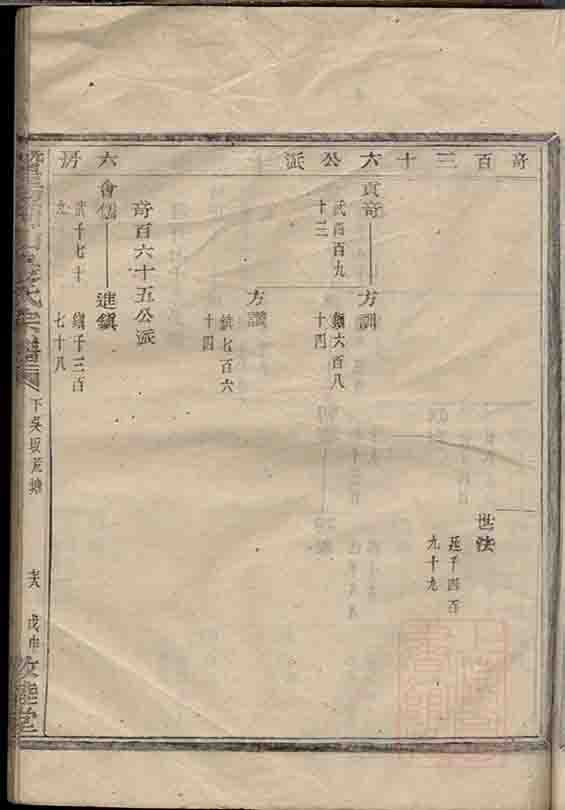 奇百三十六公派
六房
世法
延千四百
九十九
貞奇
武四百九
十三
方訓
鎮六百八
十四
方讚
鎮七百六
十四
奇百六十五公派
會儒
武千七十
進鎮
鎮千三百
七十八
氏宗譜
下吳坂荒塘
戊申
敦睦堂